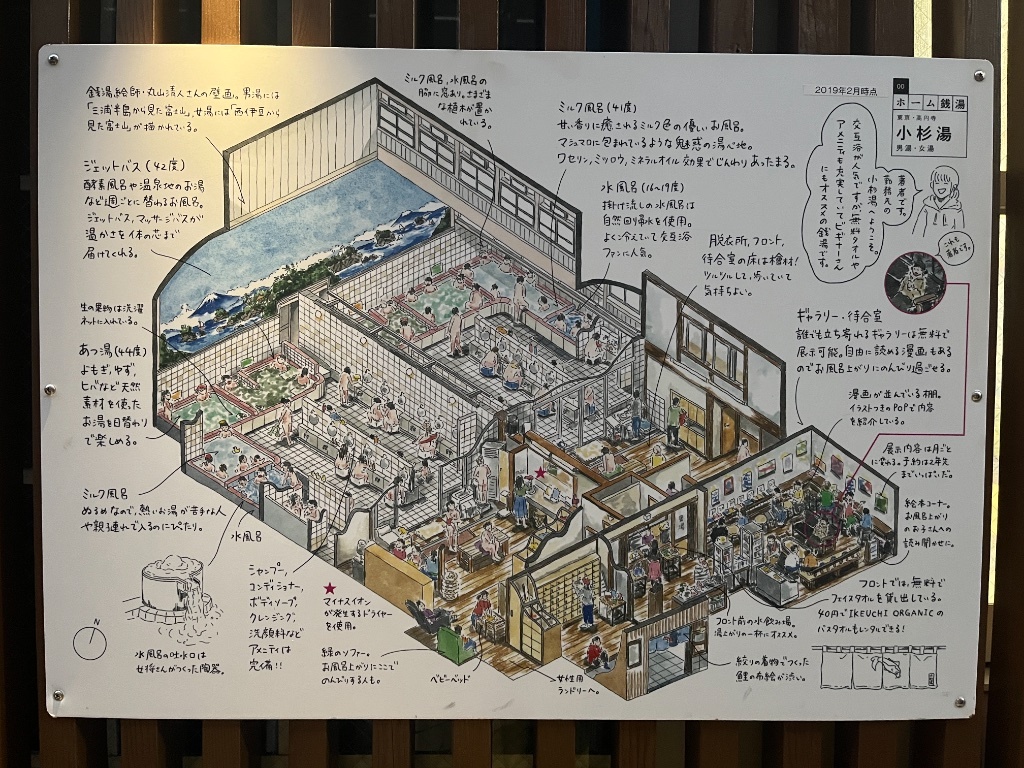 銭湯絵師・丸山清人さんの壁画。男湯には
「三浦半島から見た富士山」、女湯には「西伊豆から
見た富士山」が描かれている。
ジェットバス(42度)
酵素風呂や温泉地のお湯
など1週ごとに替わるお風呂。
ジェットバス、マッサージバスが
温かさを体の芯まで
届けてくれる。
生の果物は洗濯
ネットに入れている。
あつ湯(44度)
よもぎ、ゆず、
ヒバなど天然
素材を使った
お湯を日替わり
で楽しめる。
ミルク風呂
ぬるめなので、熱いお湯が苦手な人
や親子連れで入るのにぴたり。
水風呂
水風呂の吐水口は
女将さんがつくった陶器。
N
シャンプー、
コンディショナー、
ボディソープ、
クレンジング、
洗顔料など
アメニティは
充備!!
マイナスイオン
が発生するドライヤー
を使用。
緑のソファー。
お風呂上がりにここで
のんびりする人も。
ベビーベッド
女性用
ランドリーへ。
ミルク風呂、水風呂の
脇に窓あり。さまざま
な植木が置か
れている。
ミルク風呂(41度)
甘い香りに癒されるミルク色の優しいお風呂。
マシュマロに包まれているような魅惑の湯心地。
ワセリン、ミツロウ、ミネラルオイル効果でじんわりあったまる。
水風呂(16〜19度)
掛け流しの水風呂は
自然回帰水を使用。
よく冷えていて交互浴
ファンに人気。
脱衣所、フロント、
待合室の床は檜材!
ツルツルして、歩いていて
気持ちよい。
2019年2月時点
00
ホーム銭湯
東京・高円寺
小杉湯
男湯・女湯
著者です。
勤務先の
小杉湯へようこそ。
交互浴が人気ですが、無料タオルや
アメニティも充実していてビギナーさん
にもオススメの銭湯です。
これも
著者です。
ギャラリー・待合室
誰でも立ち寄れるギャラリーは無料で
展示可能。自由に読める漫画もある
のでお風呂上がりにのんびり過ごせる。
漫画が並んでいる棚。
イラストつきのPOPで内容
を紹介している。
展示内容は月ごと
に変わる。予約は2年先
までいっぱいだ。
絵本コーナー。
お風呂上がり
のお子さんへの
読み聞かせに。
フロントでは、無料で
フェイスタオルを貸し出している。
40円でIKEUCHI ORGANICの
バスタオルもレンタルできる!
フロント前の水飲み場。
湯上がりの一杯にオススメ。
絞りの着物でつくった
鯉の布絵が渋い。